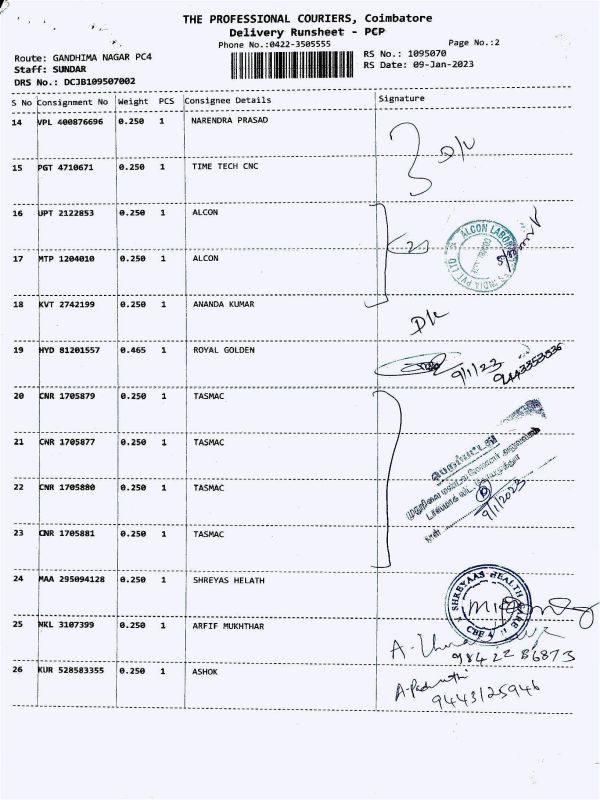 THE PROFESSIONAL COURIERS, Coimbatore
Delivery Runsheet - PCP
Phone No.:0422-3505555
Page No.:2
Route: GANDHIMA NAGAR PC4
RS No.: 1095070
Staff: SUNDAR
RS Date: 09-Jan-2023
DRS No.: DCJB109507002
S No Consignment No Weight PCS Consignee Details Signature
14 VPL 400876696 0.250 1 NARENDRA PRASAD
15 PGT 4710671 0.250 1 TIME TECH CNC
16 UPT 2122853 0.250 1 ALCON
ALCON LABOR
17 MTP 1204010 0.250 1 ALCON
2
18 KVT 2742199 0.250 1 ANANDA KUMAR
D/L
19 HYD 81201557 0.465 1 ROYAL GOLDEN
9/1/23 9443353536
20 CNR 1705879 0.250 1 TASMAC
21 CNR 1705877 0.250 1 TASMAC
22 CNR 1705880 0.250 1 TASMAC
9/1/2023
23 CNR 1705881 0.250 1 TASMAC
24 MAA 295094128 0.250 1 SHREYAS HELATH
SHREYAAS HEALTH CARE
CBE
25 NKL 3107399 0.250 1 ARFIF MUKHTHAR
9842286873
26 KUR 528583355 0.250 1 ASHOK
9443125946